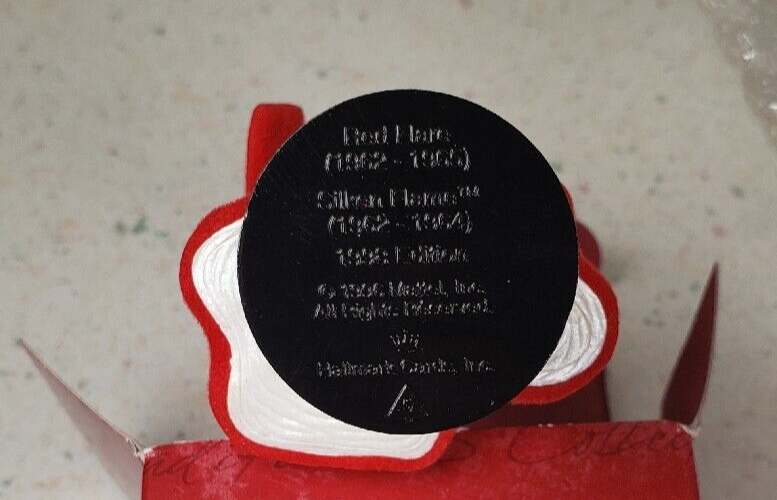 Red Flare
(1962 - 1965)
Silken Flame™
(1962 - 1964)
1998 Edition
Mattel, Inc.
All Rights Reserved.
Hallmark Cards, Inc.